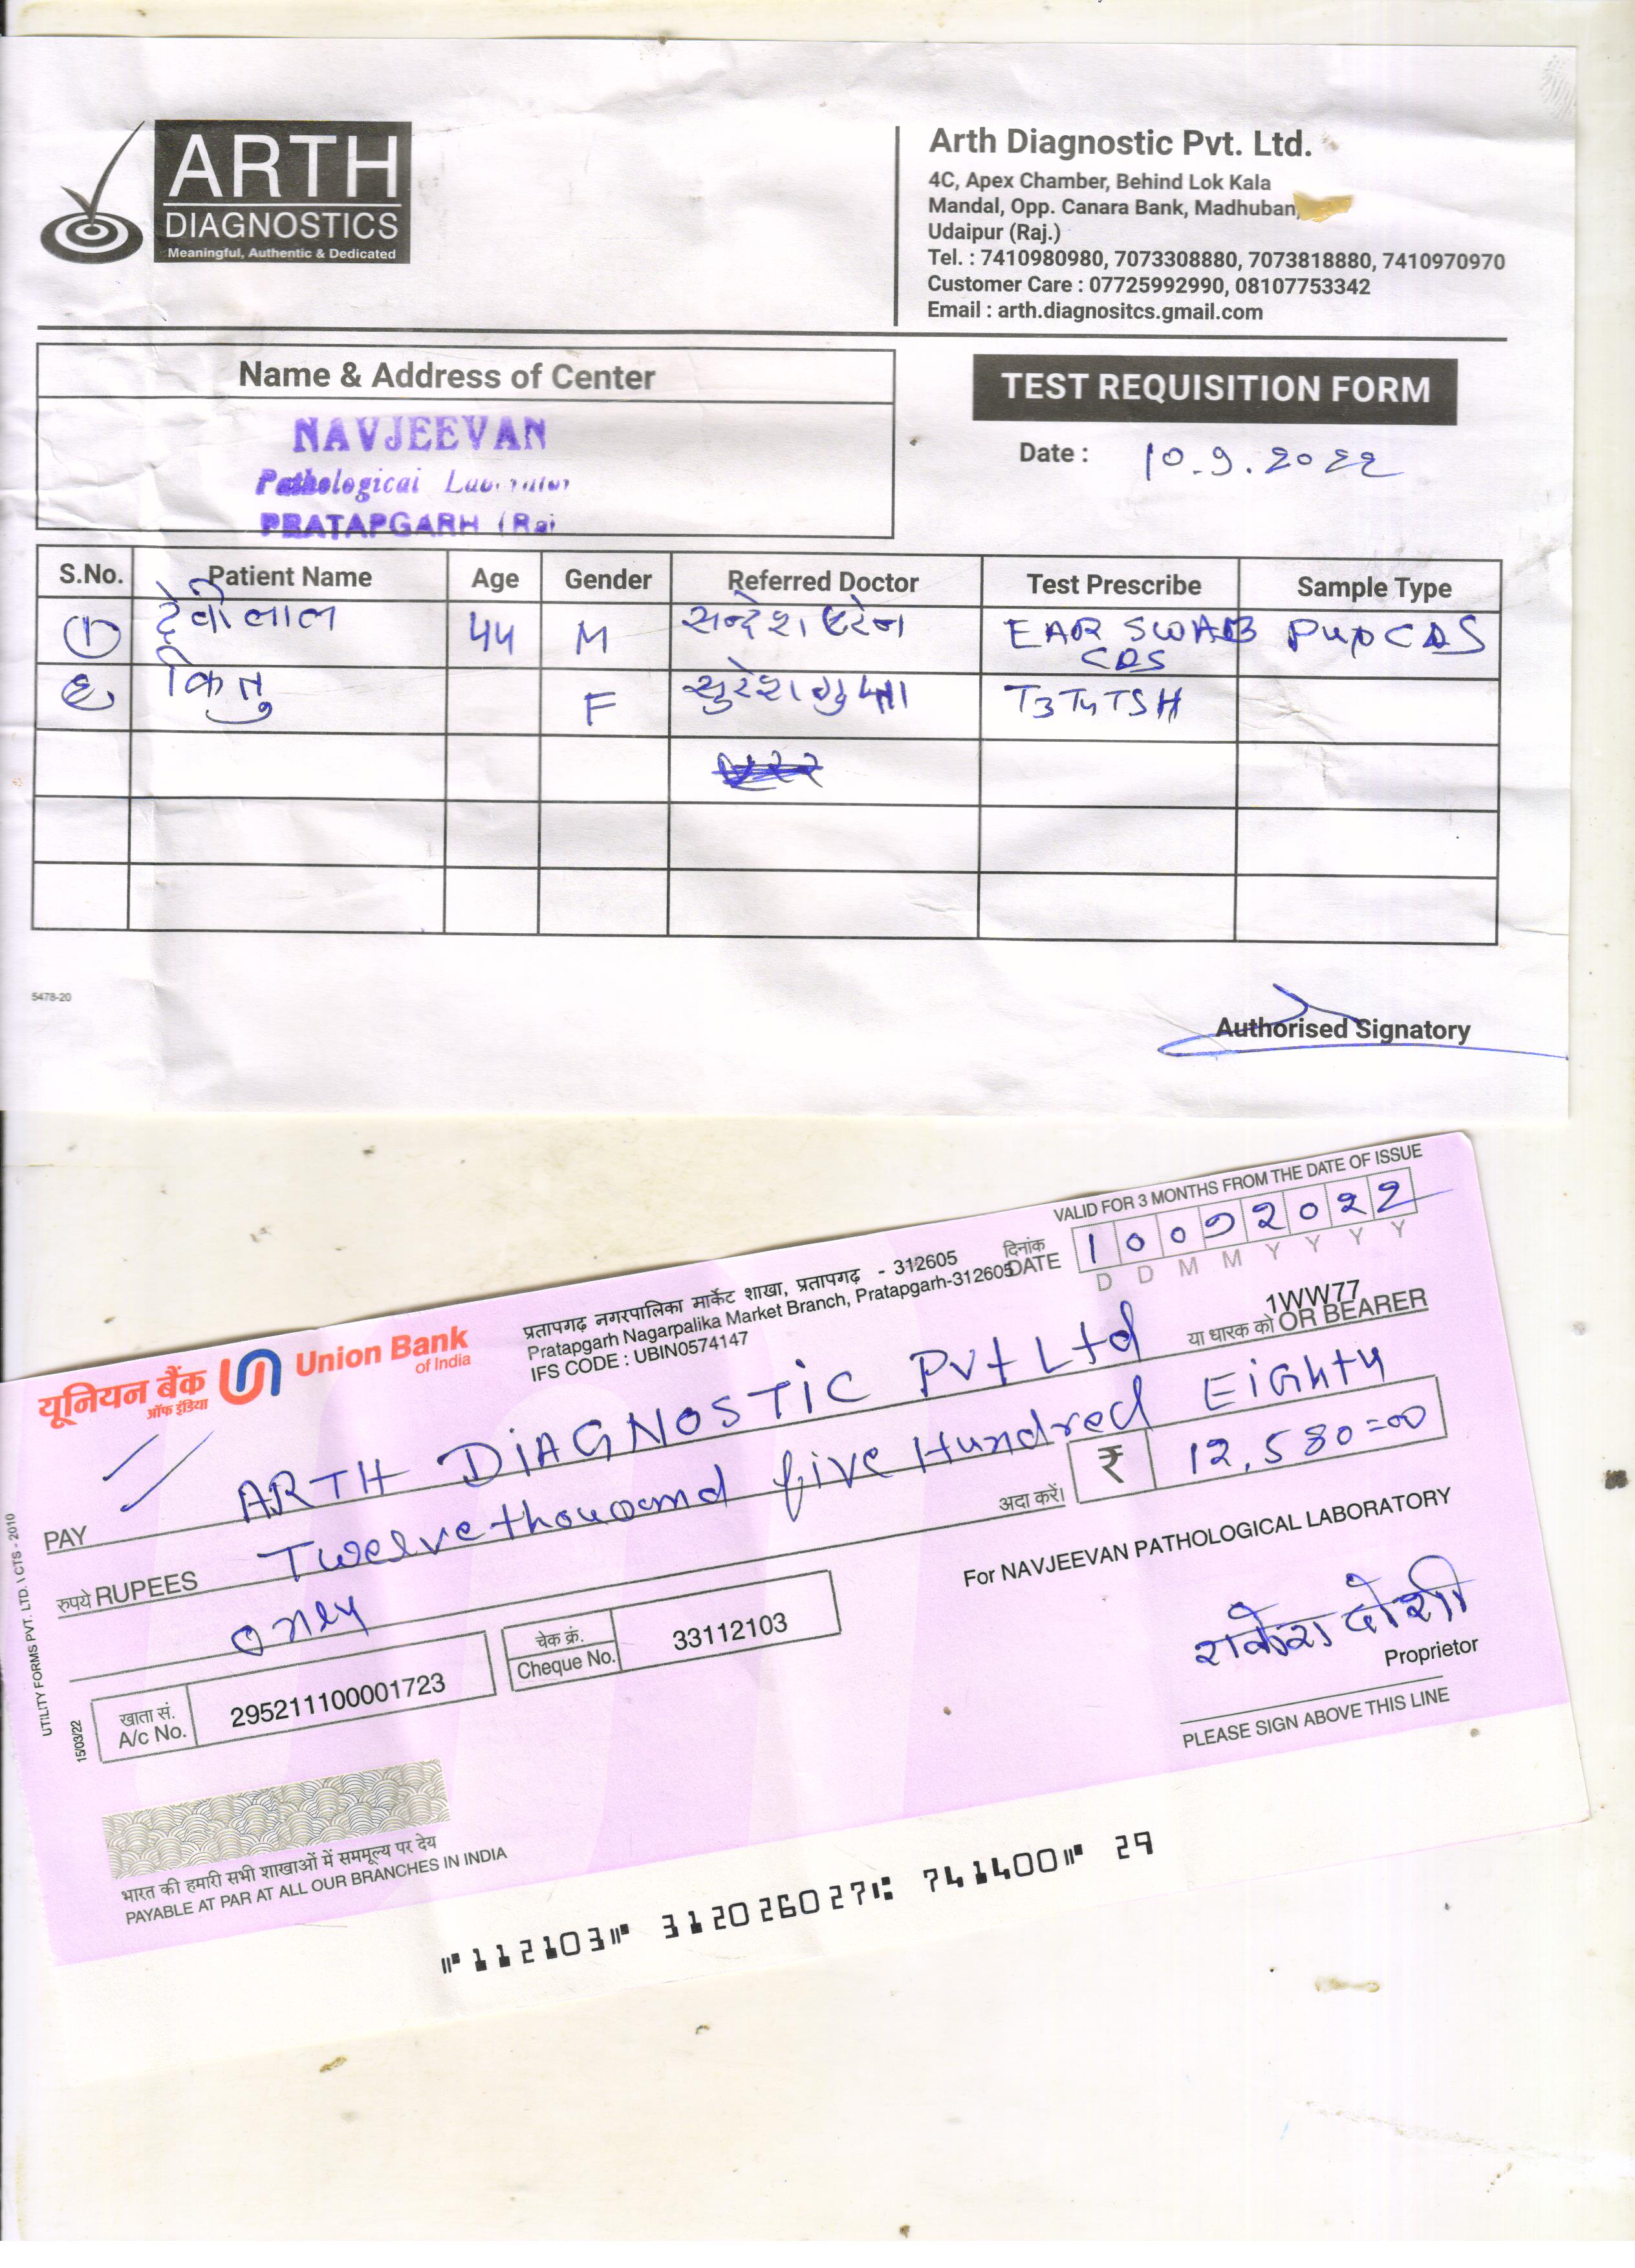 ARTH
DIAGNOSTICS
Meaningful, Authentic & Dedicated
Arth Diagnostic Pvt. Ltd.
4C, Apex Chamber, Behind Lok Kala
Mandal, Opp. Canara Bank, Madhuban,
Udaipur (Raj.)
Tel. : 7410980980, 7073308880, 7073818880, 7410970970
Customer Care : 07725992990, 08107753342
Email : arth.diagnositcs.gmail.com
Name & Address of Center
NAVJEEVAN
Pathological
PRATAPGARH (Raj
TEST REQUISITION FORM
Date : 10.9.2022
S.No. Patient Name Age Gender Referred Doctor Test Prescribe Sample Type
1 देवीलाल 44 M सन्देश EAR SWAB
C&S Pup C&S
2 किनु F सुरेश गुप्ता T3 T4 TSH
5478-20
Authorised Signatory
VALID FOR 3 MONTHS FROM THE DATE OF ISSUE
दिनांक
DATE 10092022
D D M M Y Y Y Y
यूनियन बैंक
ऑफ इंडिया
Union Bank
of India
प्रतापगढ़ नगरपालिका मार्केट शाखा, प्रतापगढ़ - 312605
Pratapgarh Nagarpalika Market Branch, Pratapgarh-312605
IFS CODE : UBIN0574147
1WW77
या धारक को OR BEARER
PAY ARTH DIAGNOSTIC Pvt Ltd
रुपये RUPEES Twelve thousand five Hundred Eighty
only
अदा करें। ₹ 12,580=00
खाता सं.
A/c No. 295211100001723
चेक क्रं.
Cheque No. 33112103
For NAVJEEVAN PATHOLOGICAL LABORATORY
राकेश दोशी
Proprietor
PLEASE SIGN ABOVE THIS LINE
UTILITY FORMS PVT. LTD. \ CTS - 2010
15/03/22
भारत की हमारी सभी शाखाओं में सममूल्य पर देय
PAYABLE AT PAR AT ALL OUR BRANCHES IN INDIA
⑈112103⑈ 312026027⑆ 741400⑈ 29